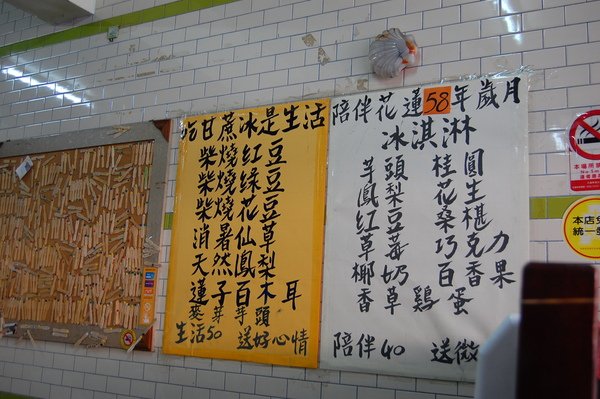 吃甘蔗冰是生活
柴燒紅豆
柴燒綠豆
柴燒花豆
消暑仙草
天然鳳梨
蓮子百木耳
麥芽芋頭
生活50 送好心情
陪伴花蓮58年歲月
冰淇淋
芋頭 桂圓
鳳梨 花生
紅豆 桑椹
草莓 巧克力
椰奶 百香果
香草 雞蛋
陪伴40 送微
本場所
No Sm
本店免
統一發